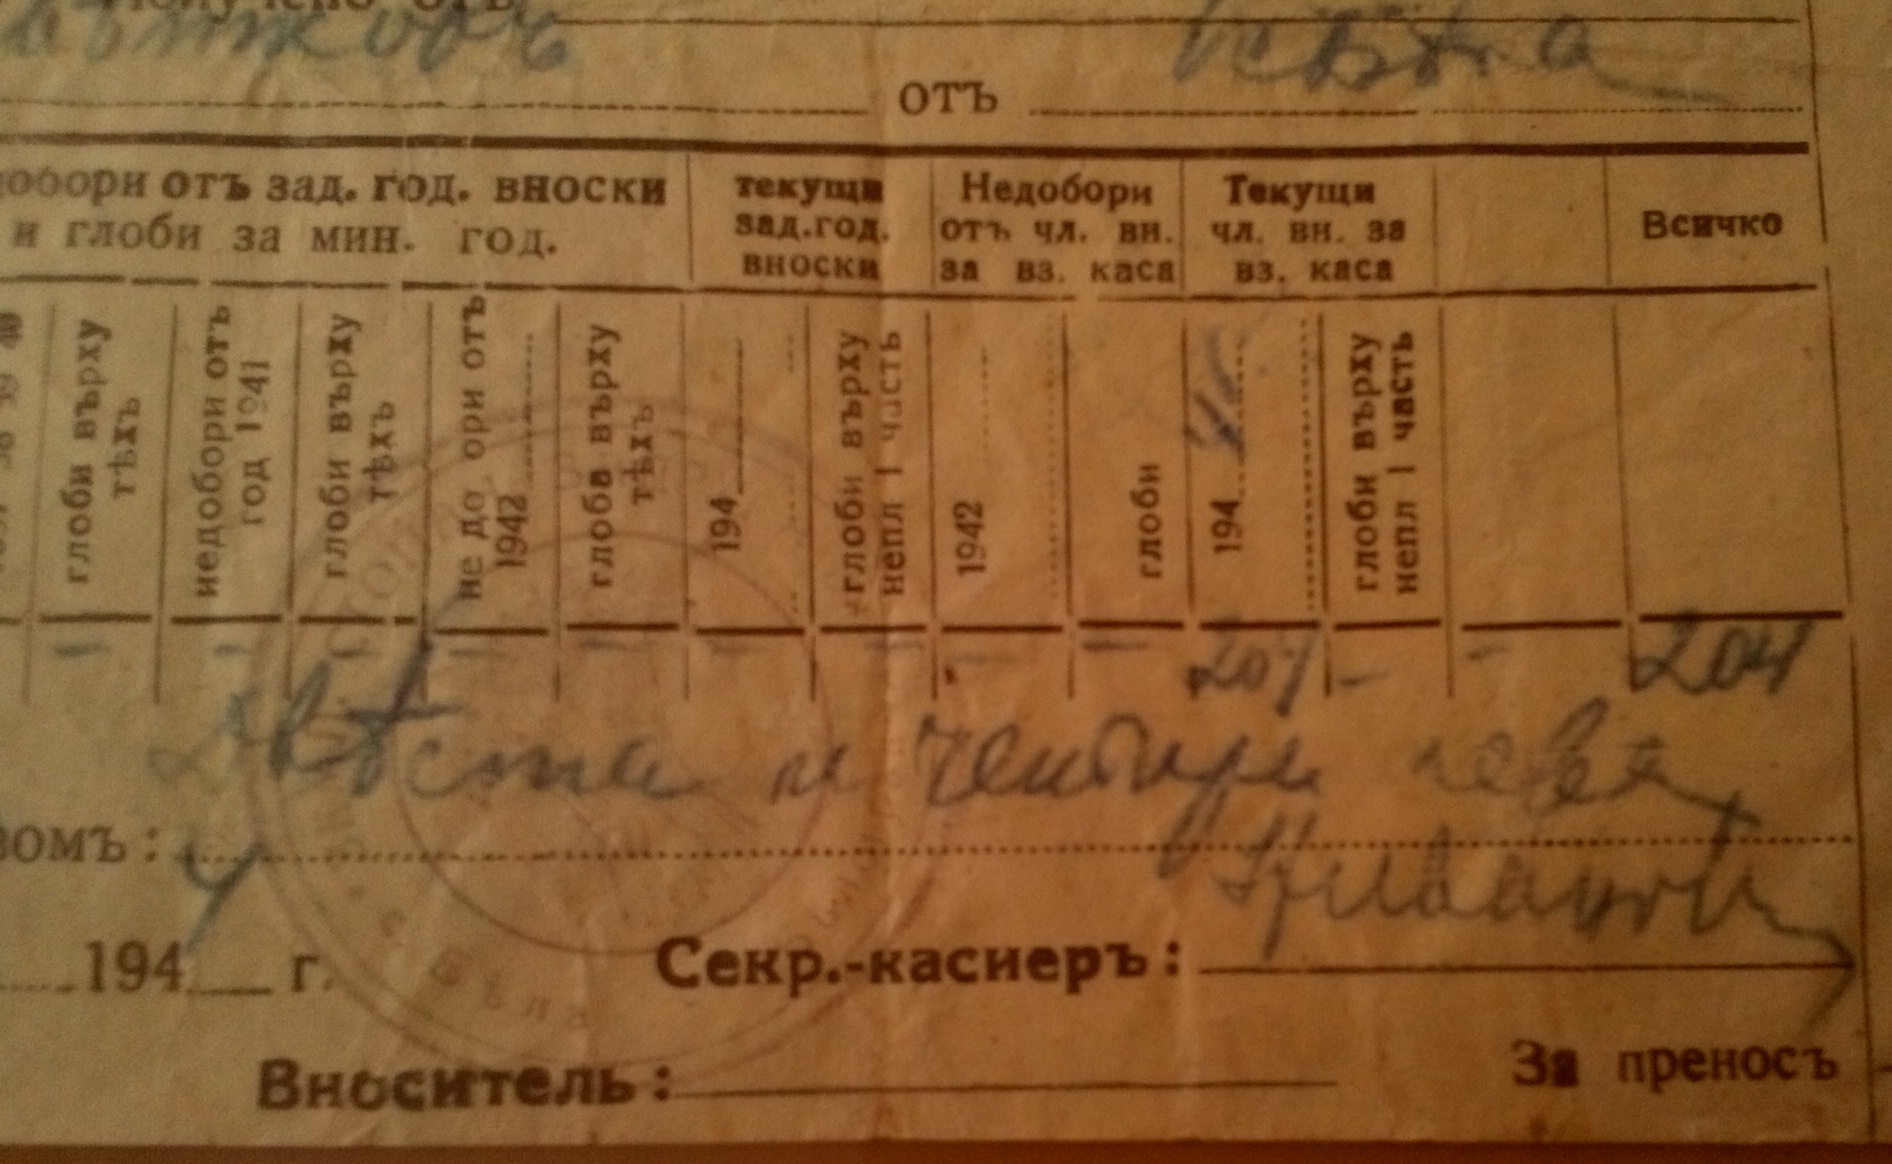 Получено отъ
отъ
обори отъ зад. год. вноски
и глоби за мин. год.
текущи
зад.год.
вноски
Недобори
отъ чл. вн.
за вз. каса
Текущи
чл. вн. за
вз. каса
Всичко
глоби върху
тѣхъ
недобори отъ
год 1941
глоби върху
тѣхъ
не до ори отъ
1942
глоба върху
тѣхъ
194
глоби върху
непл 1 часть
1942
глоби
194
глоби върху
непл 1 часть
204 204
Двѣста и четири лева
зомъ :
194 4 г.
Секр.-касиеръ :
Вноситель :
За преносъ